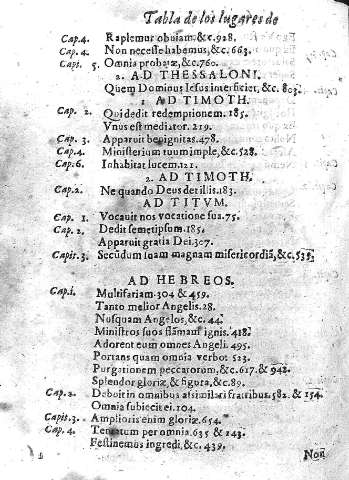 Tabla de los lugares de
Cap.4. Rapiemur obuiam.&c.928.
Cap.4. Non necesse habemus, &c. 663.
Capi. 5. Omnia probate, &c.760.
2. AD THESSALONI.
Quem Dominus Iesus interficiet, &c. 803.
1 AD TIMOTH.
Cap. 2. Qui dedit redemptionem. 185.
Vnus est mediator. 219.
Cap. 3. Apparuit benignitas.478.
Cap. 4. Ministerium tuum imple, &c.528.
Cap.6. Inhabitat lucem.121.
2. AD TIMOTH.
Cap.2. Ne quando Deus det illis.183.
AD TITVM.
Cap. 1. Vocauit nos vocatione sua.75.
Cap. 2. Dedit semetipsum.185.
Apparuit gratia Dei.307.
Capit.3. Secūdum suam magnam misericordiā, &c.535.
AD HEBREOS.
Cap.i. Multifariam.304 & 459.
Tanto melior Angelis.28.
Nusquam Angelos, &c.44.
Ministros suos flāmam ignis.418.
Adorent eum omnes Angeli. 495.
Portans quam omnia verbo. 523.
Purgationem peccatorum, &c.617. & 942.
Splendor gloriæ, & figura, &c.89.
Cap.2. Debuit in omnibus assimilari fratribus.582. & 154.
Omnia subiecit ei.104.
Capit.3. Amplioris enim gloriæ.654.
Cap. 4. Tentatum per omnia.635 & 143.
Festinemus ingredi, &c.439.
Non